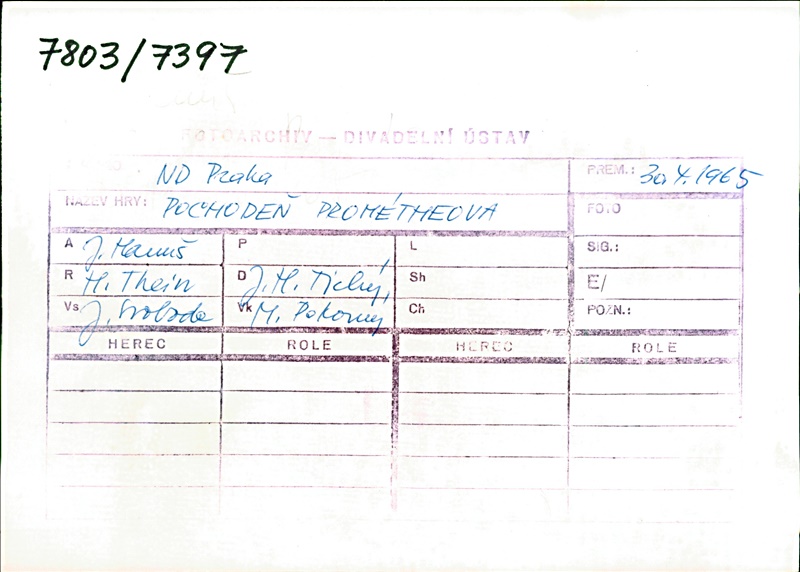 7803/7397
FOTOARCHIV — DIVADELNÍ ÚSTAV
ND Praha
PREM.: 30.4.1965
NÁZEV HRY: POCHODEŇ PROMÉTHEOVA
FOTO
A J. Hanuš P L SIG.:
R H. Thein D J. H. Tichý, Sh E/
Vs J. Svoboda Vk M. Pokorný Ch POZN.:
HEREC ROLE HEREC ROLE